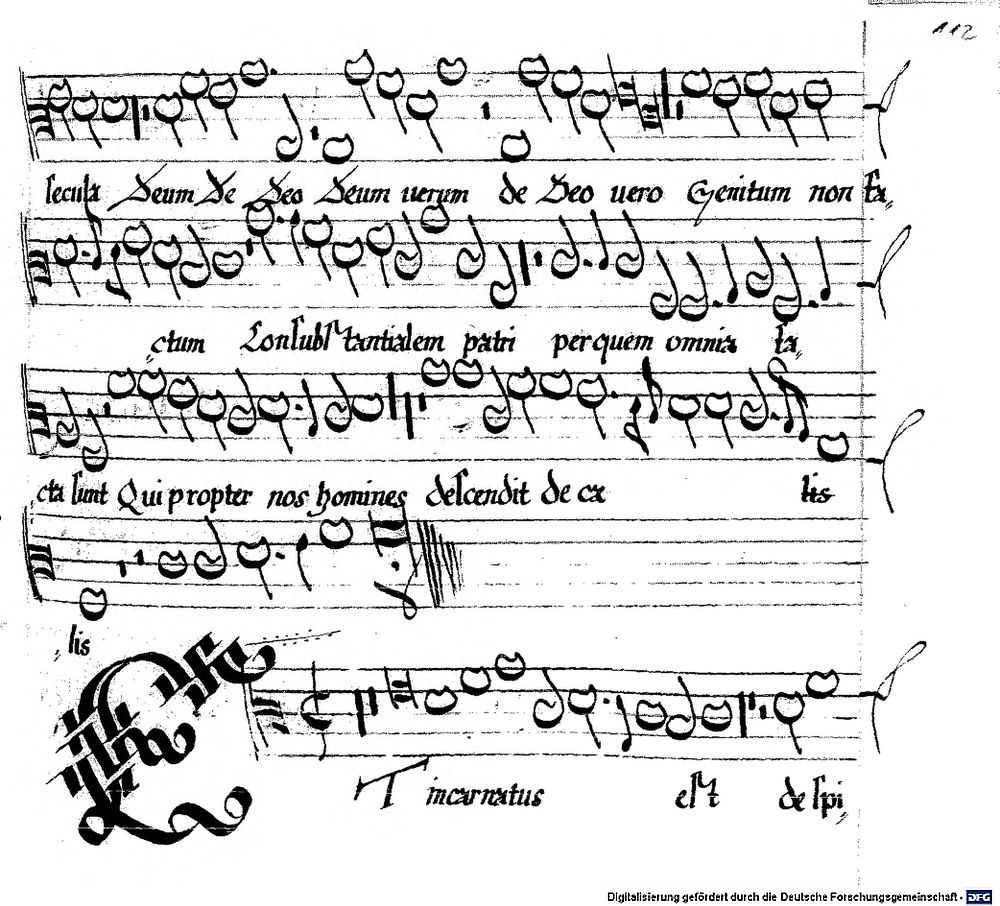 112
secula Deum De Deo Deum uerum de Deo uero Genitum non fa„
„ctum Consubstantialem patri per quem omnia fa„
cta sunt Qui propter nos homines descendit de cæ lis
„lis
ET incarnatus est de spi„
Digitalisierung gefördert durch die Deutsche Forschungsgemeinschaft - DFG